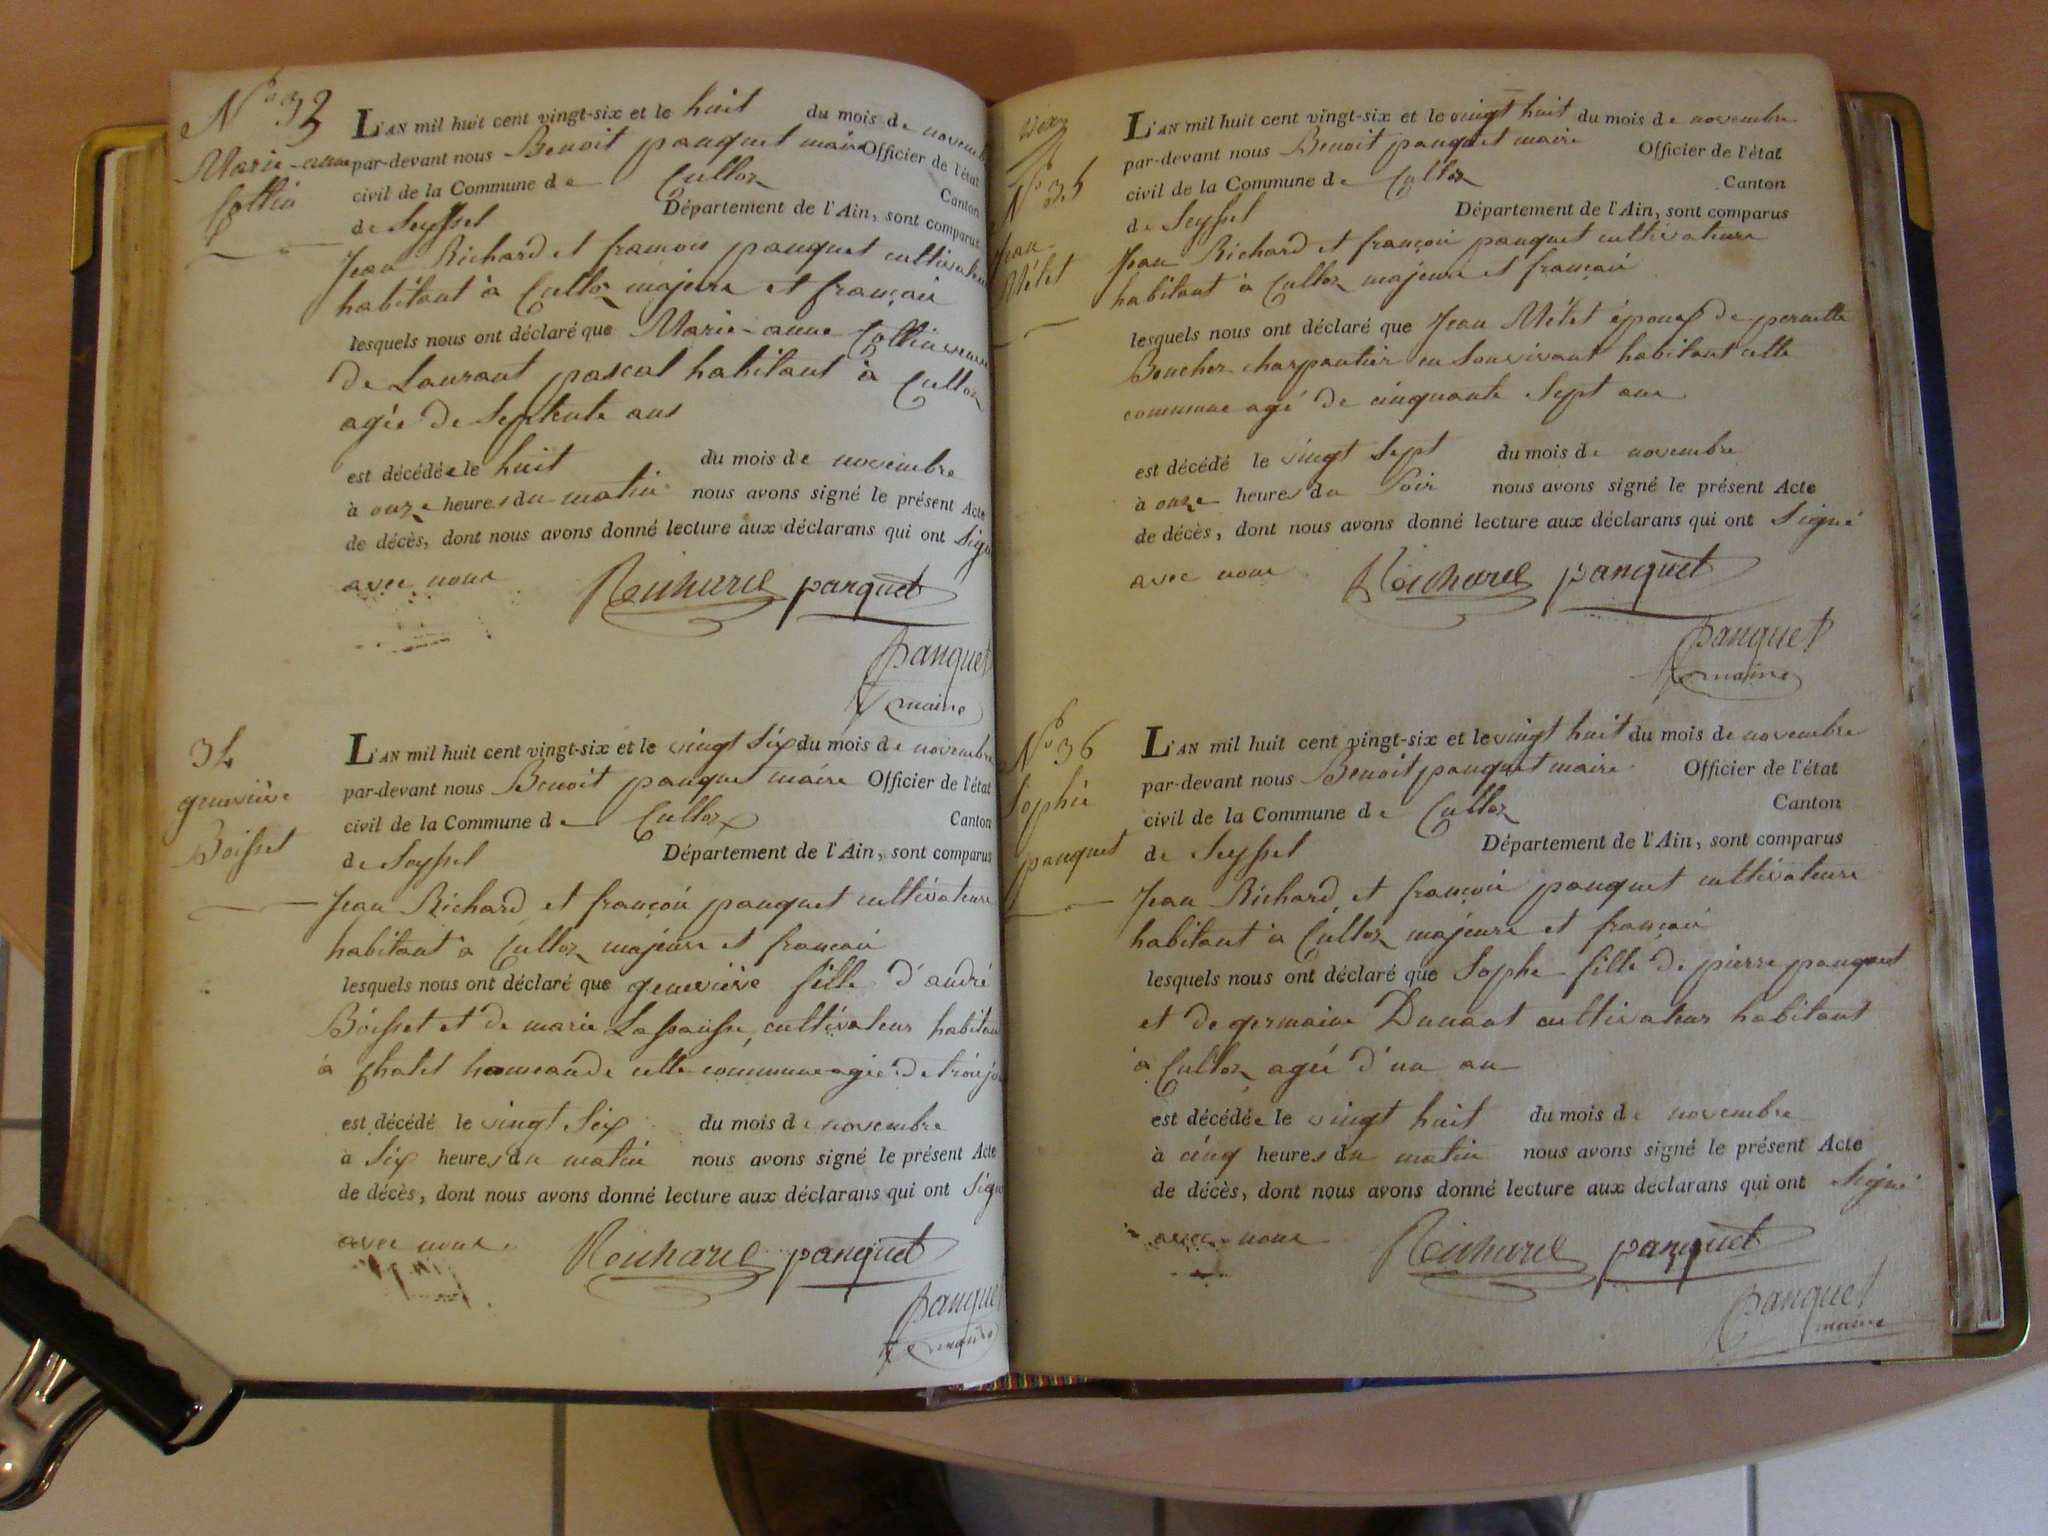 No 33
Marie-anne
Cottin
L'AN mil huit cent vingt-six et le huit du mois de novembre
par-devant nous Benoit panquet maire Officier de l'état
civil de la Commune de Culloz Canton
de Seyssel Département de l'Ain, sont comparus
Jean Richard et françois panquet cultivateurs
habitant à Culloz majeurs et français
lesquels nous ont déclaré que Marie-anne Cottin veuve
de Laurant pascal habitant à Culloz
agée de Septente ans
est décédée le huit du mois de novembre
à onze heures du matin nous avons signé le présent Acte
de décès, dont nous avons donné lecture aux déclarans qui ont Signé
avec nous Richard panquet
panquet
maire
34
genevieve
Boisset
L'AN mil huit cent vingt-six et le vingt Six du mois de novembre
par-devant nous Benoit panquet maire Officier de l'état
civil de la Commune de Culloz Canton
de Seyssel Département de l'Ain, sont comparus
Jean Richard et françois panquet cultivateurs
habitant à Culloz majeurs et français
lesquels nous ont déclaré que genevieve fille d'andré
Boisset et de marie cultivateur habitant
à Chatel hameau de cette commune agée de trois
est décédé le vingt Six du mois de novembre
à Six heures du matin nous avons signé le présent Acte
de décès, dont nous avons donné lecture aux déclarans qui ont Signé
avec nous Richard panquet
panquet
maire
No 35
Jean
Métet
L'AN mil huit cent vingt-six et le vingt huit du mois de novembre
par-devant nous Benoit panquet maire Officier de l'état
civil de la Commune de Culloz Canton
de Seyssel Département de l'Ain, sont comparus
Jean Richard et françois panquet cultivateurs
habitant à Culloz majeurs et français
lesquels nous ont déclaré que Jean Métet époux de pernette
Boucher charpantier en Son vivant habitant cette
commune agé de cinquante Sept ans
est décédé le vingt Sept du mois de novembre
à onze heures du Soir nous avons signé le présent Acte
de décès, dont nous avons donné lecture aux déclarans qui ont Signé
avec nous Richard panquet
panquet
maire
No 36
Sophie
panquet
L'AN mil huit cent vingt-six et le vingt huit du mois de novembre
par-devant nous Benoit panquet maire Officier de l'état
civil de la Commune de Culloz Canton
de Seyssel Département de l'Ain, sont comparus
Jean Richard et françois panquet cultivateurs
habitant à Culloz majeurs et français
lesquels nous ont déclaré que Sophe fille de pierre panquet
et de germaine Dunant cultivateur habitant
à Culloz agée d'un an
est décédée le vingt huit du mois de novembre
à cinq heures du matin nous avons signé le présent Acte
de décès, dont nous avons donné lecture aux déclarans qui ont Signé
avec nous Richard panquet
panquet
maire